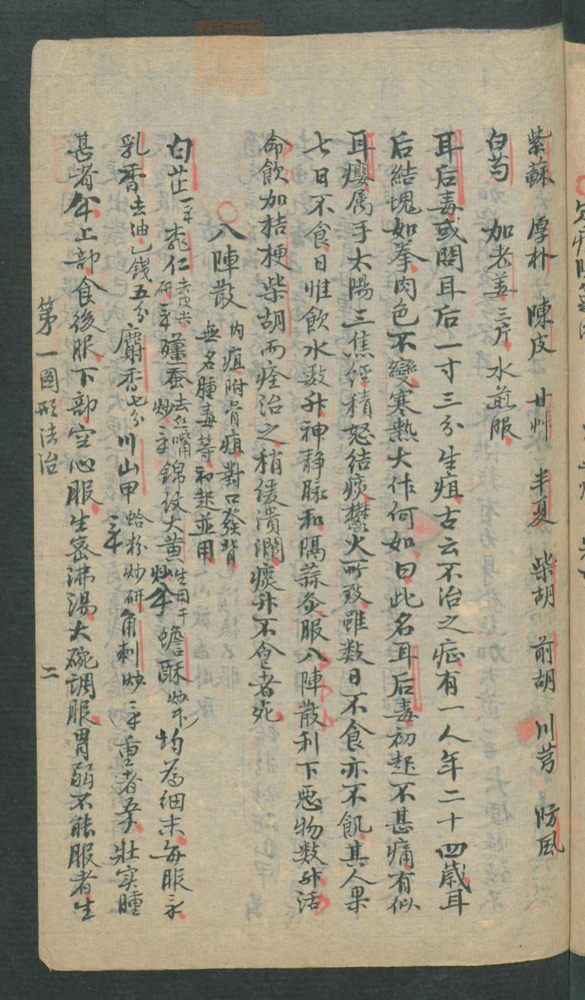 紫蘇 厚朴 陳皮 甘艸 半夏 柴胡 前胡 川芎 防風
白芍 加老姜三片 水煎服
耳后毒或問耳后一寸三分生疽古云不治之症有一人年二十四歲耳
后結塊如拳肉色不變寒熱大作何如曰此名耳后毒初起不甚痛有似
耳癭属于太陽三焦經積怒結痰鬱火所致雖数日不食亦不飢其人果
七日不食日惟飲水数升神静脉和隔蒜灸服八陣散利下惡物数升活
命飲加桔梗柴胡而痊治之稍緩潰爛痰升不食者死
八陣散 内疽附骨疽對口發背
無名腫毒等初起並用
白芷 桃仁去皮尖研 殭蚕去絲嘴炒 錦紋大黄 蟾酥炒 均為細末每服
乳香去油 錢五分 麝香七分 川山甲蛤粉炒研 角刺炒 重者 壯實腫
甚者 上部食後服下部空心服生蜜沸湯大碗調服胃弱不能服者生
第一圖形法治 二